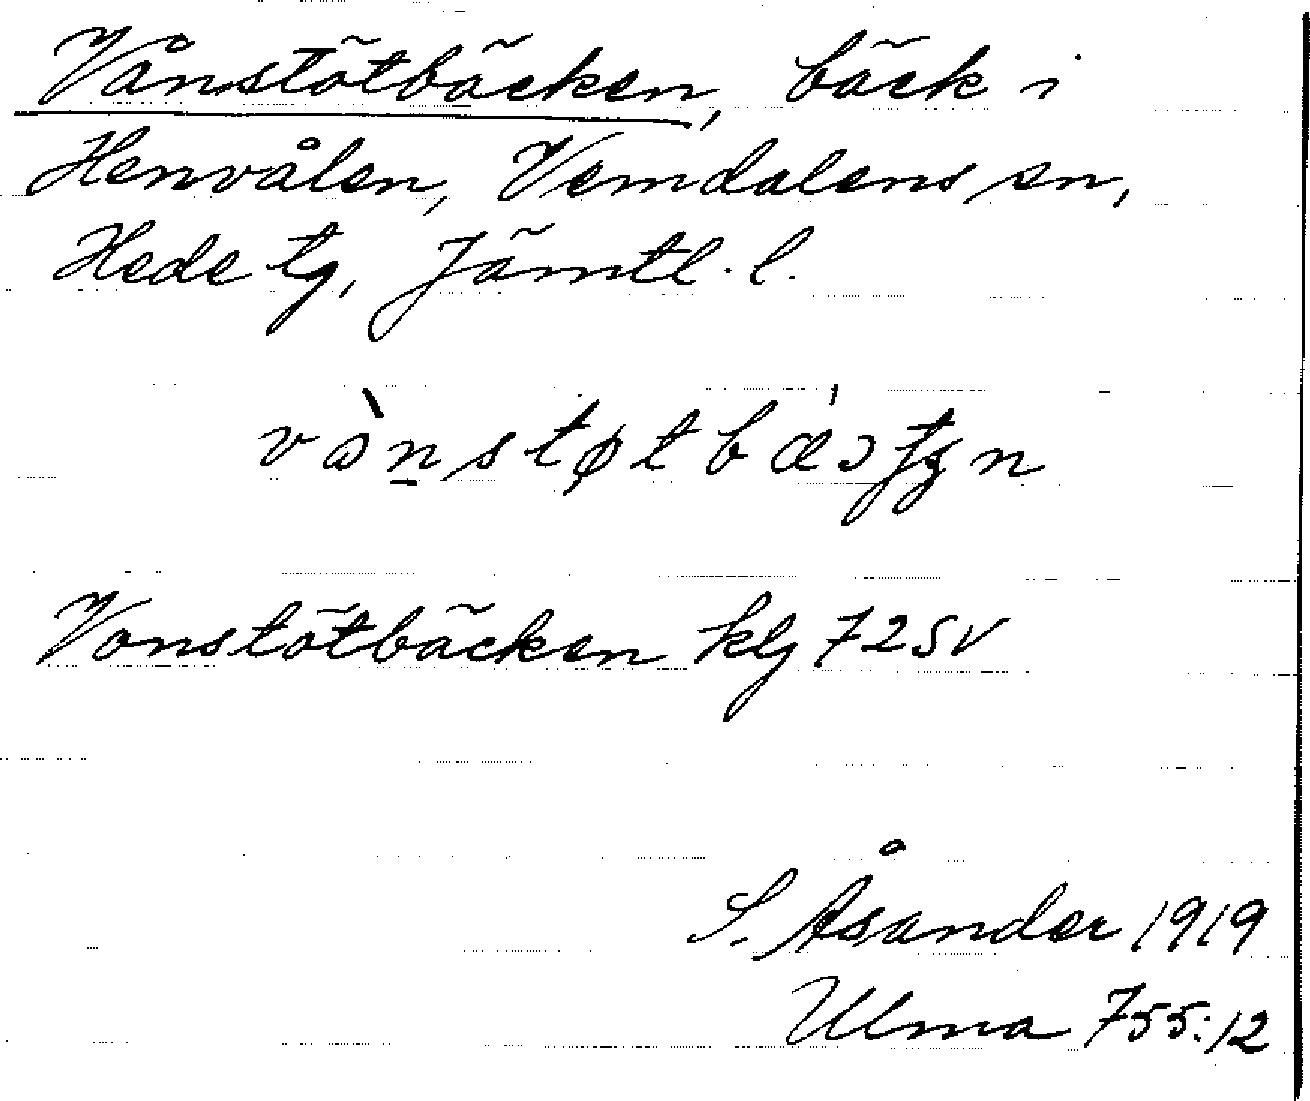 Vånstötbäcken, bäck i
Henvålen, Vemdalens sn,
Hede tg, Jämtl. l.
Vonstötbäcken klg 72 SV
S. Åsander 1919
Ulma 755:12